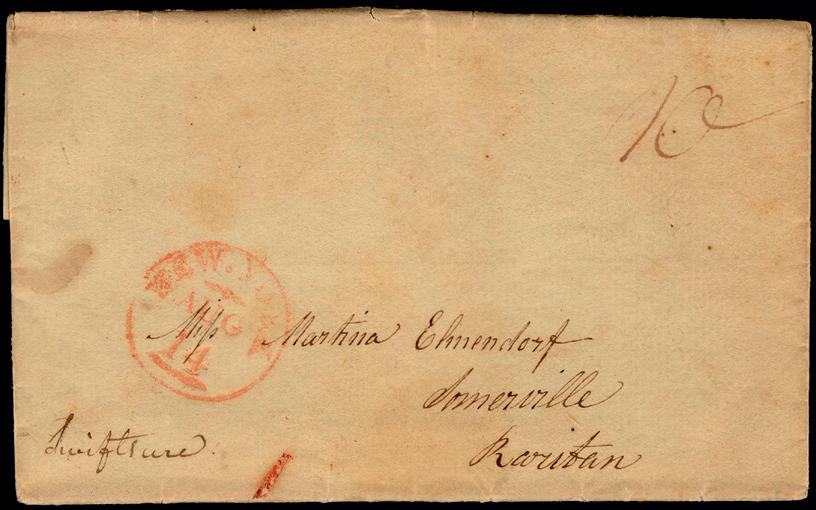 10
NEW-YORK
AUG
14
Miss Martina Elmendorf
Somerville
Raritan
Swiftsure